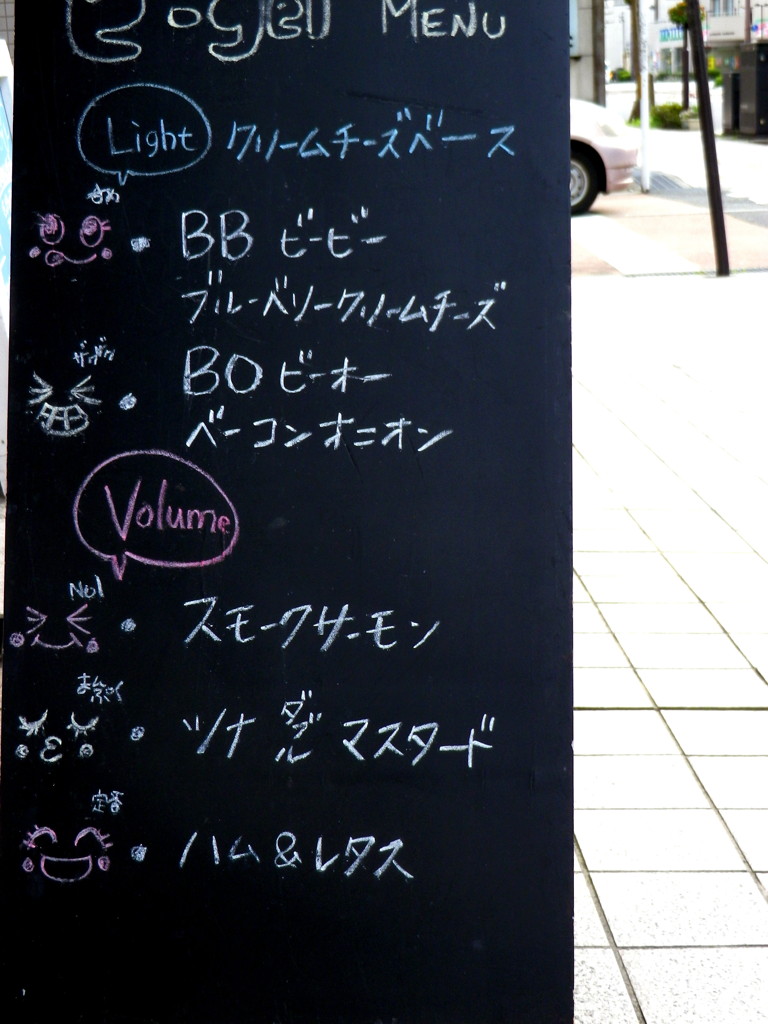 MENU
Light クリームチーズベース
BB ビービー
ブルーベリークリームチーズ
ザクザク
BO ビーオー
ベーコンオニオン
Volume
No1
スモークサーモン
ツナ ダブル マスタード
定番
ハム&レタス